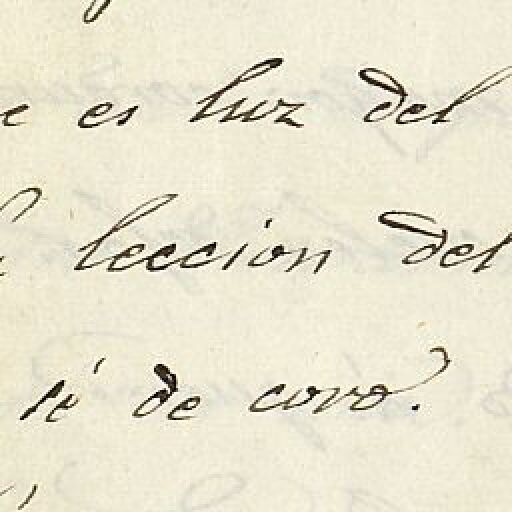 es luz del
leccion del
sé de coro.